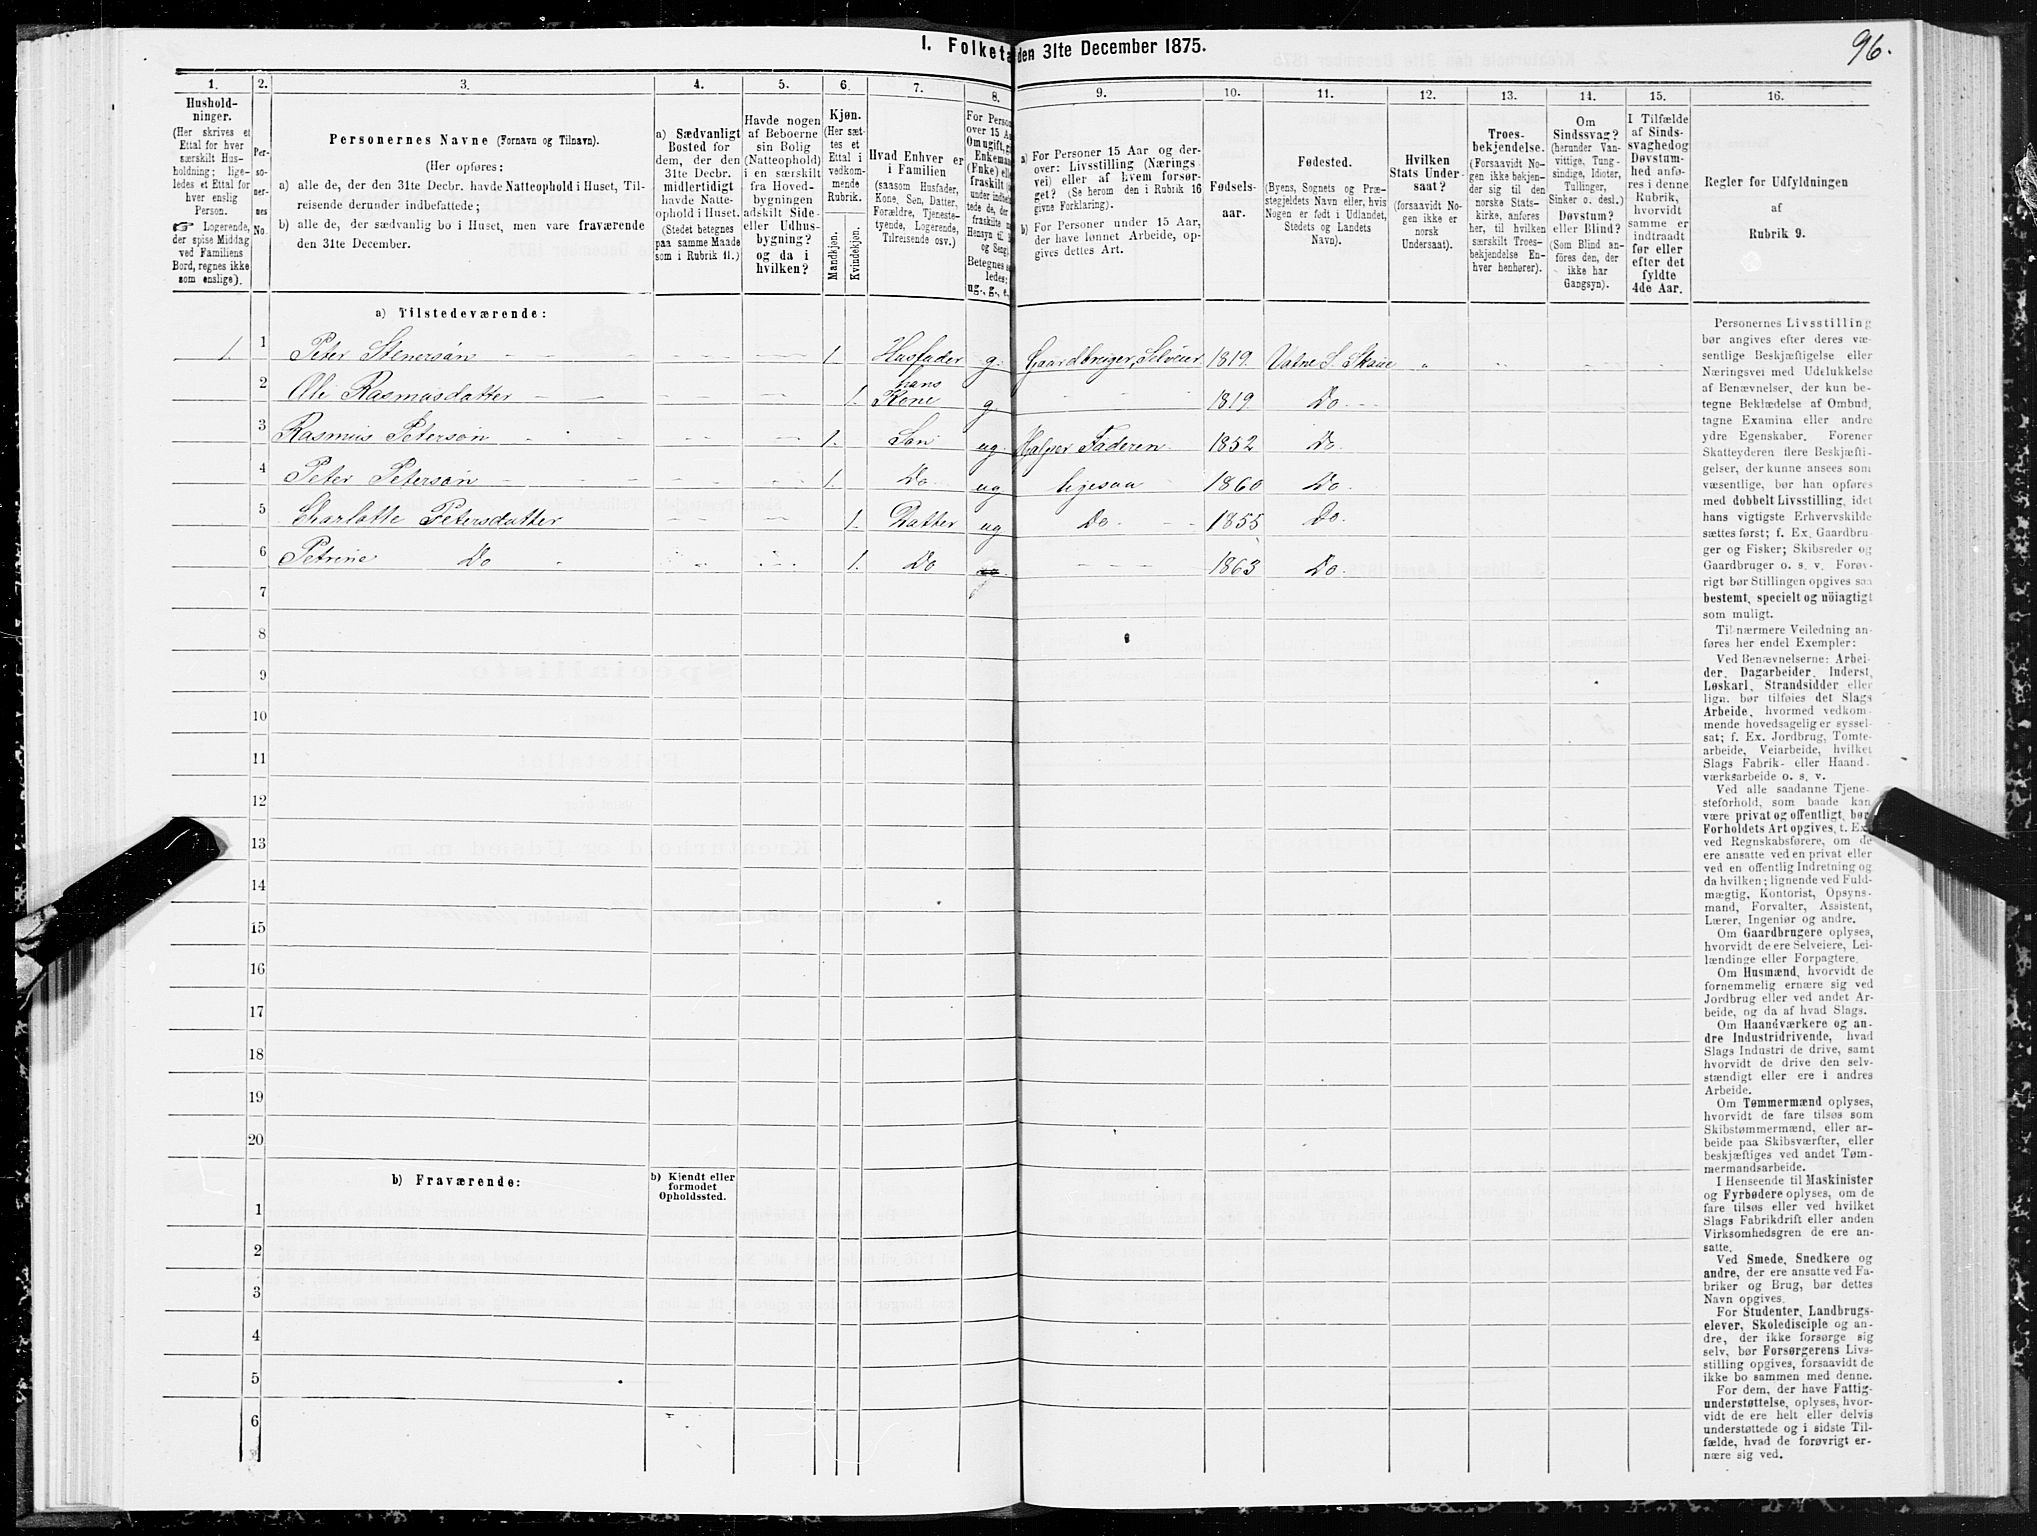 96.
I. Folketæ
den 31te December 1875.
1. 2. 3. 4. 5. 6. 7. 8. 9. 10. 11. 12. 13. 14. 15. 16.
Hushold-
ninger.
(Her skrives et
Ettal for hver
særskilt Hus-
holdning; lige-
ledes et Ettal for
hver enslig
Person.
☞ Logerende,
der spise Middag
ved Familiens
Bord, regnes ikke
som enslige).
Per-
so-
ner-
nes
No.
Personernes Navne (Fornavn og Tilnavn).
(Her opføres:
a) alle de, der den 31te Decbr. havde Natteophold i Huset, Til-
reisende derunder indbefattede;
b) alle de, der sædvanlig bo i Huset, men vare fraværende
den 31te December.
a) Sædvanligt
Bosted for
dem, der den
31te Decbr.
midlertidigt
havde Natte-
ophold i Huset.
(Stedet betegnes
paa samme Maade
som i Rubrik 11.)
Havde nogen
af Beboerne
sin Bolig
(Natteophold)
i en særskilt
fra Hoved-
bygningen
adskilt Side-
eller Udhus-
bygning?
og da i
hvilken?
Kjøn.
(Her sæt-
tes et
Ettal i
vedkom-
mende
Rubrik.
Mandkjøn.
Kvindekjøn.
Hvad Enhver er
i Familien
(saasom Husfader,
Kone, Søn, Datter,
Forældre, Tjeneste-
tyende, Logerende,
Tilreisende osv.)
For Person
over 15 Aa
Om ugift, gi
Enkeman
(Enke) elle
fraskilt
under indbe
tede de, de
fraskilte
Hensyn til
og Seng)
Betegnes s
ledes:
ug., g., e.,
a) For Personer 15 Aar og der-
over: Livsstilling (Nærings
vei) eller af hvem forsør-
get? (Se herom den i Rubrik 16
givne Forklaring).
b) For Personer under 15 Aar,
der have lønnet Arbeide, op-
gives dettes Art.
Fødsels-
aar.
Fødested.
(Byens, Sognets og Præ-
stegjeldets Navn eller, hvis
Nogen er født i Udlandet,
Stedets og Landets
Navn).
Hvilken
Stats Under-
saat?
(forsaavidt No-
gen ikke er
norsk
Undersaat).
Troes-
bekjendelse.
(Forsaavidt No-
gen ikke bekjen-
der sig til den
norske Stats-
kirke, anføres
her, til hvilken
særskilt Troes-
bekjendelse En-
hver henhører).
Om
Sindssvag?
(herunder Van-
vittige, Tung-
sindige, Idioter,
Tullinger,
Sinker o. desl.)
Døvstum?
eller Blind?
(Som Blind an-
føres den, der
ikke har
Gangsyn).
I Tilfælde
af Sinds-
svaghed og
Døvstum-
hed anfø-
res i denne
Rubrik,
hvorvidt
samme er
indtraadt
før eller
efter det
fyldte
4de Aar.
Regler for Udfyldningen
af
Rubrik 9.
a) Tilstedeværende:
1. 1 Peter Stenersøn 1. Husfader g. Gaardbruger, Selveier 1819. Vatne S. Skaue
2 Oli Rasmusdatter 1. hans Kone g. 1819. Do
3 Rasmus Petersøn 1. Søn ug. Hjælper Faderen 1852 Do
4 Peter Petersøn 1. Do ug ligesaa 1860 Do
5 Charlotte Petersdatter 1. Datter ug Do 1855 Do
6 Petrine Do 1. Do 1863 Do
7
8
9
10
11
12
13
14
15
16
17
18
19
20
b) Fraværende:
b) Kjendt eller
formodet
Opholdssted.
1
2
3
4
5
6
Personernes Livsstilling
bør angives efter deres væ-
sentlige Beskjæftigelse eller
Næringsvei med Udelukkelse
af Benævnelser, der kun be-
tegne Beklædelse af Ombud,
tagne Examina eller andre
ydre Egenskaber. Forener
Skatteyderen flere Beskjæfti-
gelser, der kunne ansees som
væsentlige, bør han opføres
med dobbelt Livsstilling, idet
hans vigtigste Erhvervskilde
sættes først; f. Ex. Gaardbru-
ger og Fisker; Skibsreder og
Gaardbruger o. s. v. Forøv-
rigt bør Stillingen opgives saa
bestemt, specielt og nöiagtigt
som muligt.
Til nærmere Veiledning an-
føres her endel Exempler:
Ved Benævnelserne: Arbei-
der, Dagarbeider, Inderst,
Løskarl, Strandsidder eller
lign. bør tilføies det Slags
Arbeide, hvormed vedkom-
mende hovedsagelig er syssel-
sat; f. Ex. Jordbrug, Tomte-
arbeide, Veiarbeide, hvilket
Slags Fabrik- eller Haand-
værksarbeide o. s. v.
Ved alle saadanne Tjene-
steforhold, som baade kan
være privat og offentligt, bør
Forholdets Art opgives, t. Ex.
ved Regnskabsførere, om de
ere ansatte ved en privat eller
ved en offentlig Indretning og
da hvilken; lignende ved Fuld-
mægtig, Kontorist, Opsyns-
mand, Forvalter, Assistent,
Lærer, Ingeniør og andre.
Om Gaardbrugere oplyses,
hvorvidt de ere Selveiere, Lei-
lændinge eller Forpagtere.
Om Husmænd, hvorvidt de
fornemmelig ernære sig ved
Jordbrug eller ved andet Ar-
beide, og da af hvad Slags.
Om Haandværkere og an-
dre Industridrivende, hvad
Slags Industri de drive, samt
hvorvidt de drive den selv-
stændigt eller ere i andres
Arbeide.
Om Tømmermænd oplyses,
hvorvidt de fare tilsøs som
Skibstømmermænd, eller ar-
beide paa Skibsværfter, eller
beskjæftiges ved andet Tøm-
mermandsarbeide.
I Henseende til Maskinister
og Fyrbødere oplyses, om de
fare tilsøs eller ved hvilket
Slags Fabrikdrift eller anden
Virksomhedsgren de ere an-
satte.
Ved Smede, Snedkere og
andre, der ere ansatte ved Fa-
briker og Brug, bør dettes
Navn opgives.
For Studenter, Landbrugs-
elever, Skoledisciple og an-
dre, der ikke forsørge sig
selv, bør Forsørgerens Livs-
stilling opgives, forsaavidt de
ikke bo sammen med denne.
For dem, der have Fattig-
understøttelse, oplyses, hvor-
vidt de ere helt eller delvis
understøttede og i sidste Til-
fælde, hvad de forøvrigt er-
nære sig ved.